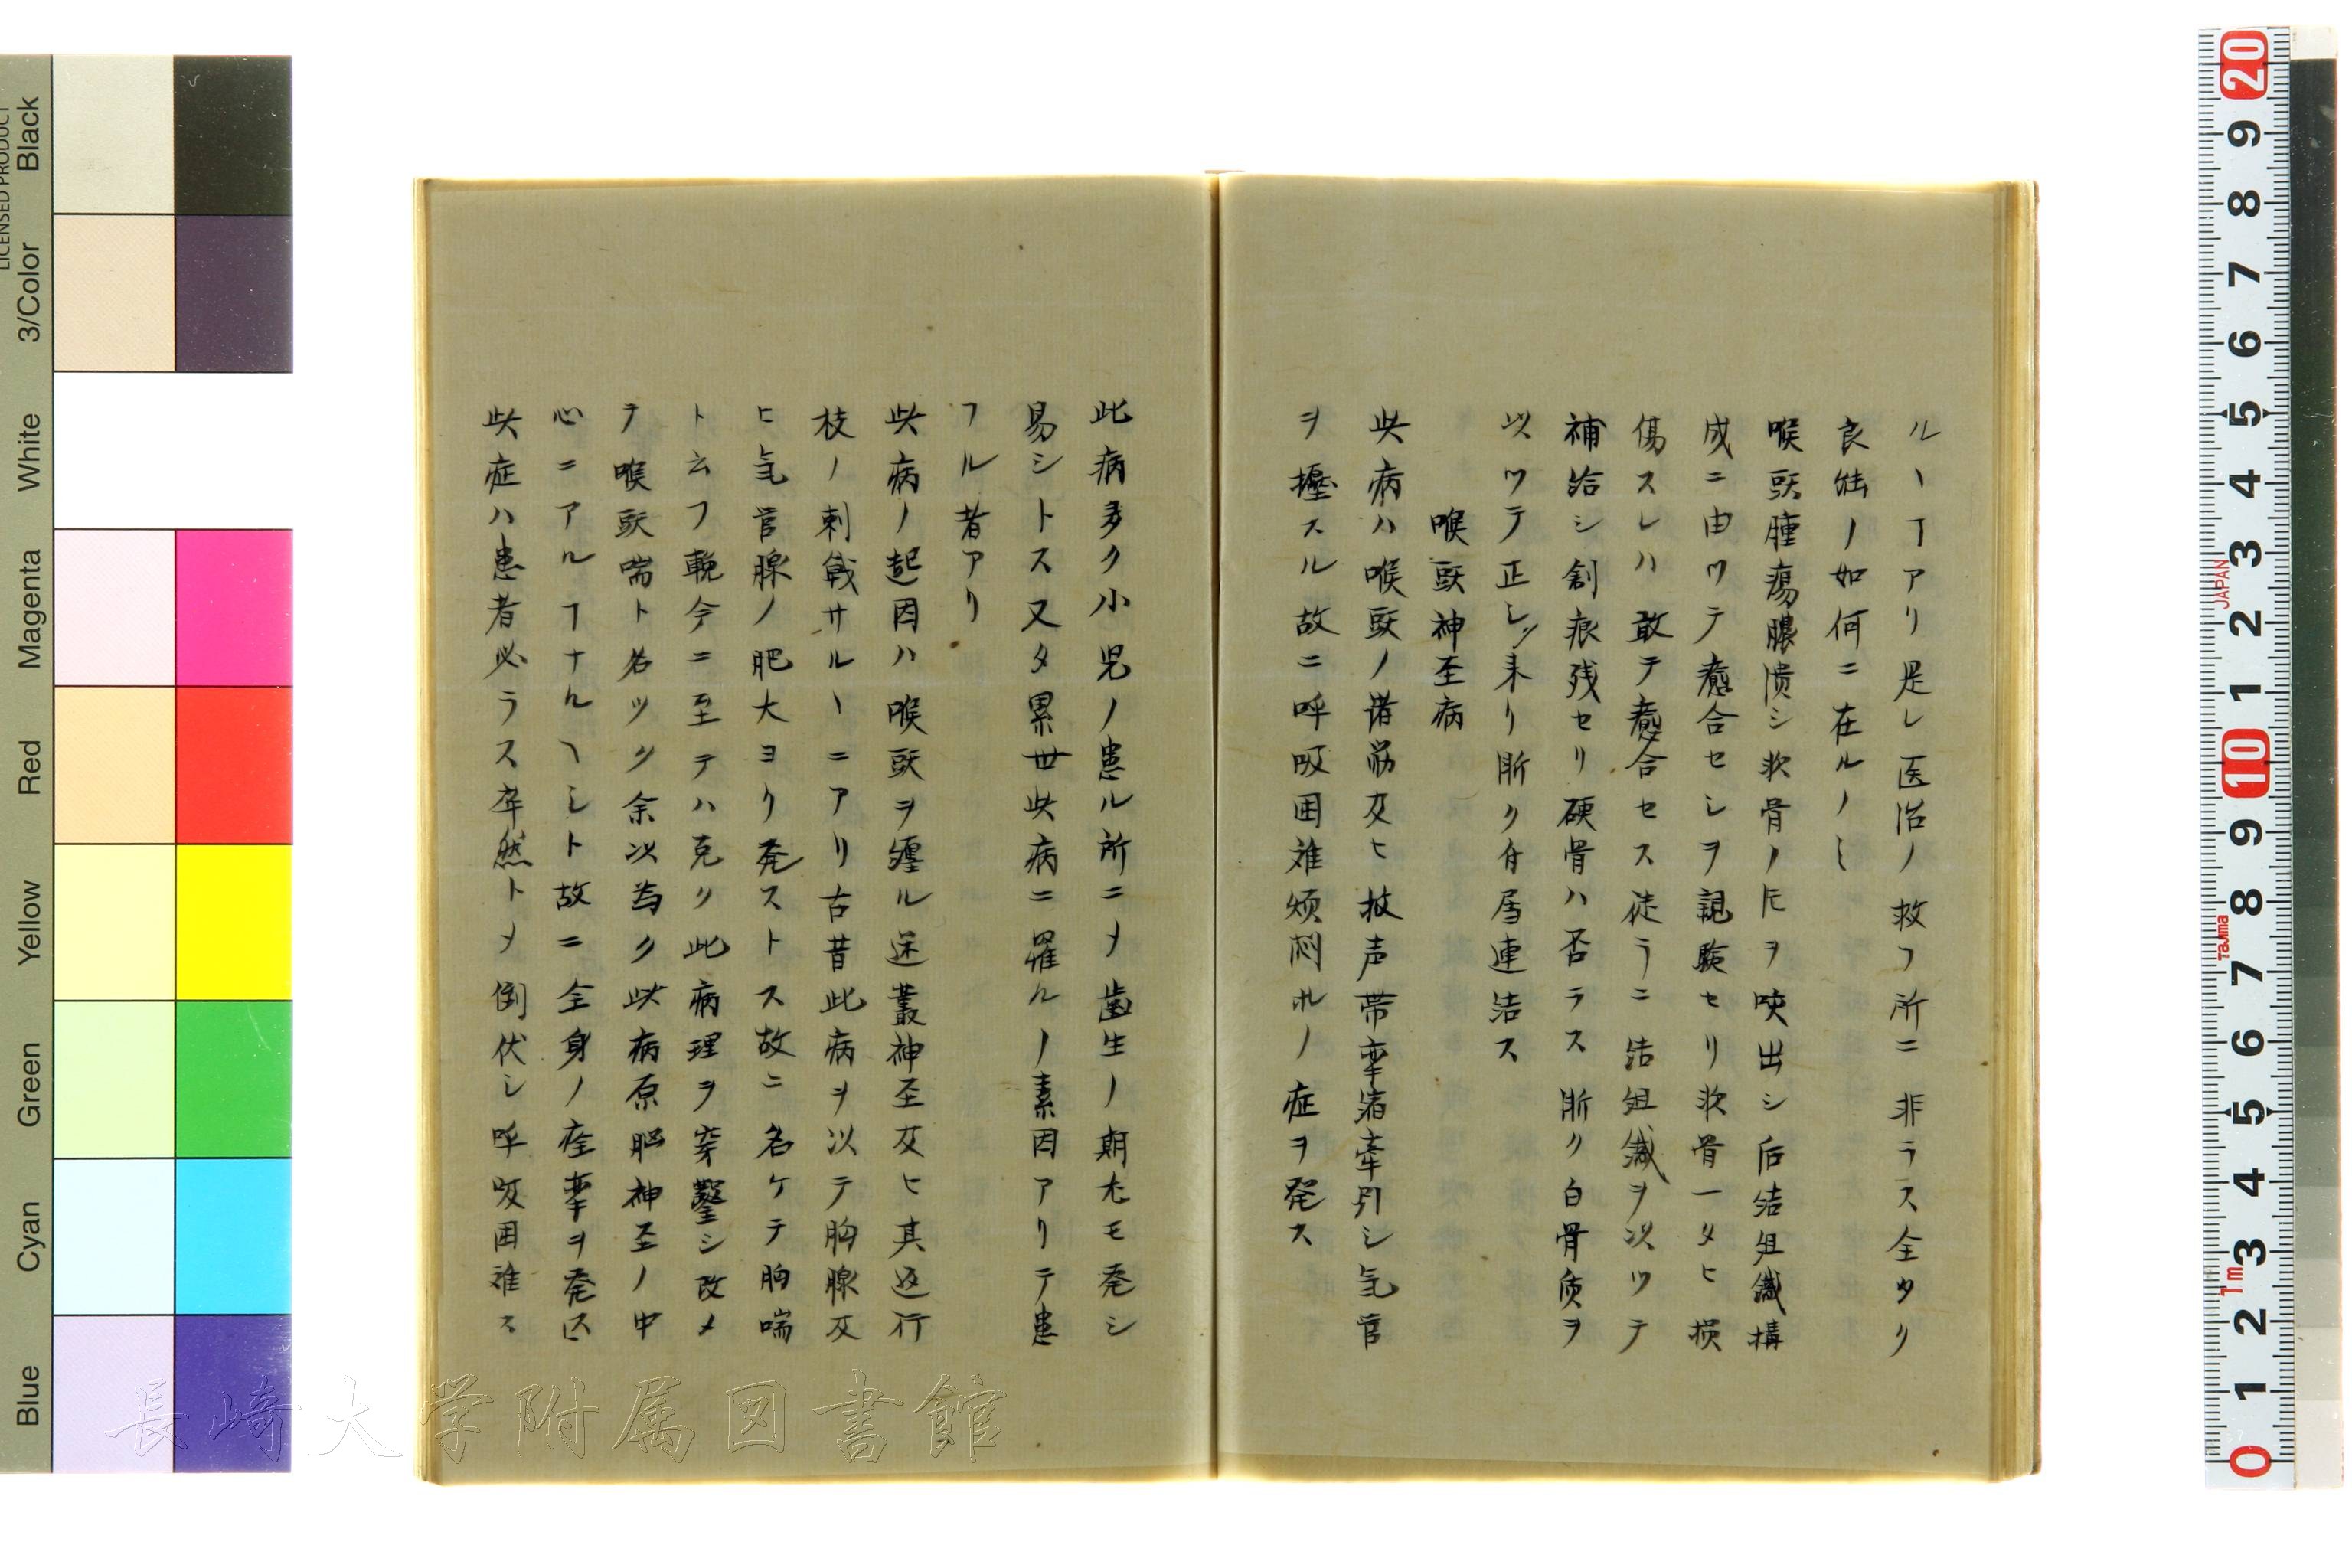 ルヿアリ是レ医治ノ救フ所ニ非ラス全タク
良能ノ如何ニ在ルノミ
喉頭腫瘍膿潰シ軟骨ノ片ヲ咳出シ后結組織構
成ニ由ツテ癒合セシヲ親験セリ軟骨一タヒ損
傷スレハ敢テ癒合セス徒ラニ結組織ヲ以ツテ
補給シ創痕残セリ硬骨ハ否ラス斯ク白骨質ヲ
以ツテ正シ来リ斯ク付属連結ス
喉頭神圣病
此病ハ喉頭ノ諸筋及ヒ披声帯牽縮牽引シ気官
ヲ壅スル故ニ呼吸困难煩悶ホノ症ヲ発ス
此病多ク小児ノ患ル所ニメ歯生ノ期尤モ発シ
易シトス又タ累世此病ニ罹ルノ素因アリテ患
フル者アリ
此病ノ起因ハ喉頭ヲ纏ル迷叢神圣及ヒ其返行
枝ノ刺戟サルヽニアリ古昔此病ヲ以テ胸腺及
ヒ気官腺ノ肥大ヨリ発ストス故ニ名ケテ胸喘
ト云フ輓今ニ至テハ克ク此病理ヲ穿鑿シ改メ
テ喉頭喘ト名ツク余以為ク此病原脳神圣ノ中
心ニアルヿナルヘシト故ニ全身ノ痙牽ヲ発ス
此症ハ患者必ラス卒然トメ倒伏シ呼吸困难ス
長崎大学附属図書館
LICENSED PRODUCT
Black
3/Color
White
Magenta
Red
Yellow
Green
Cyan
Blue
20
9
8
7
6
5
4
3
2
1
10
9
8
7
6
5
4
3
2
1
0
JAPAN
Tajima
1m